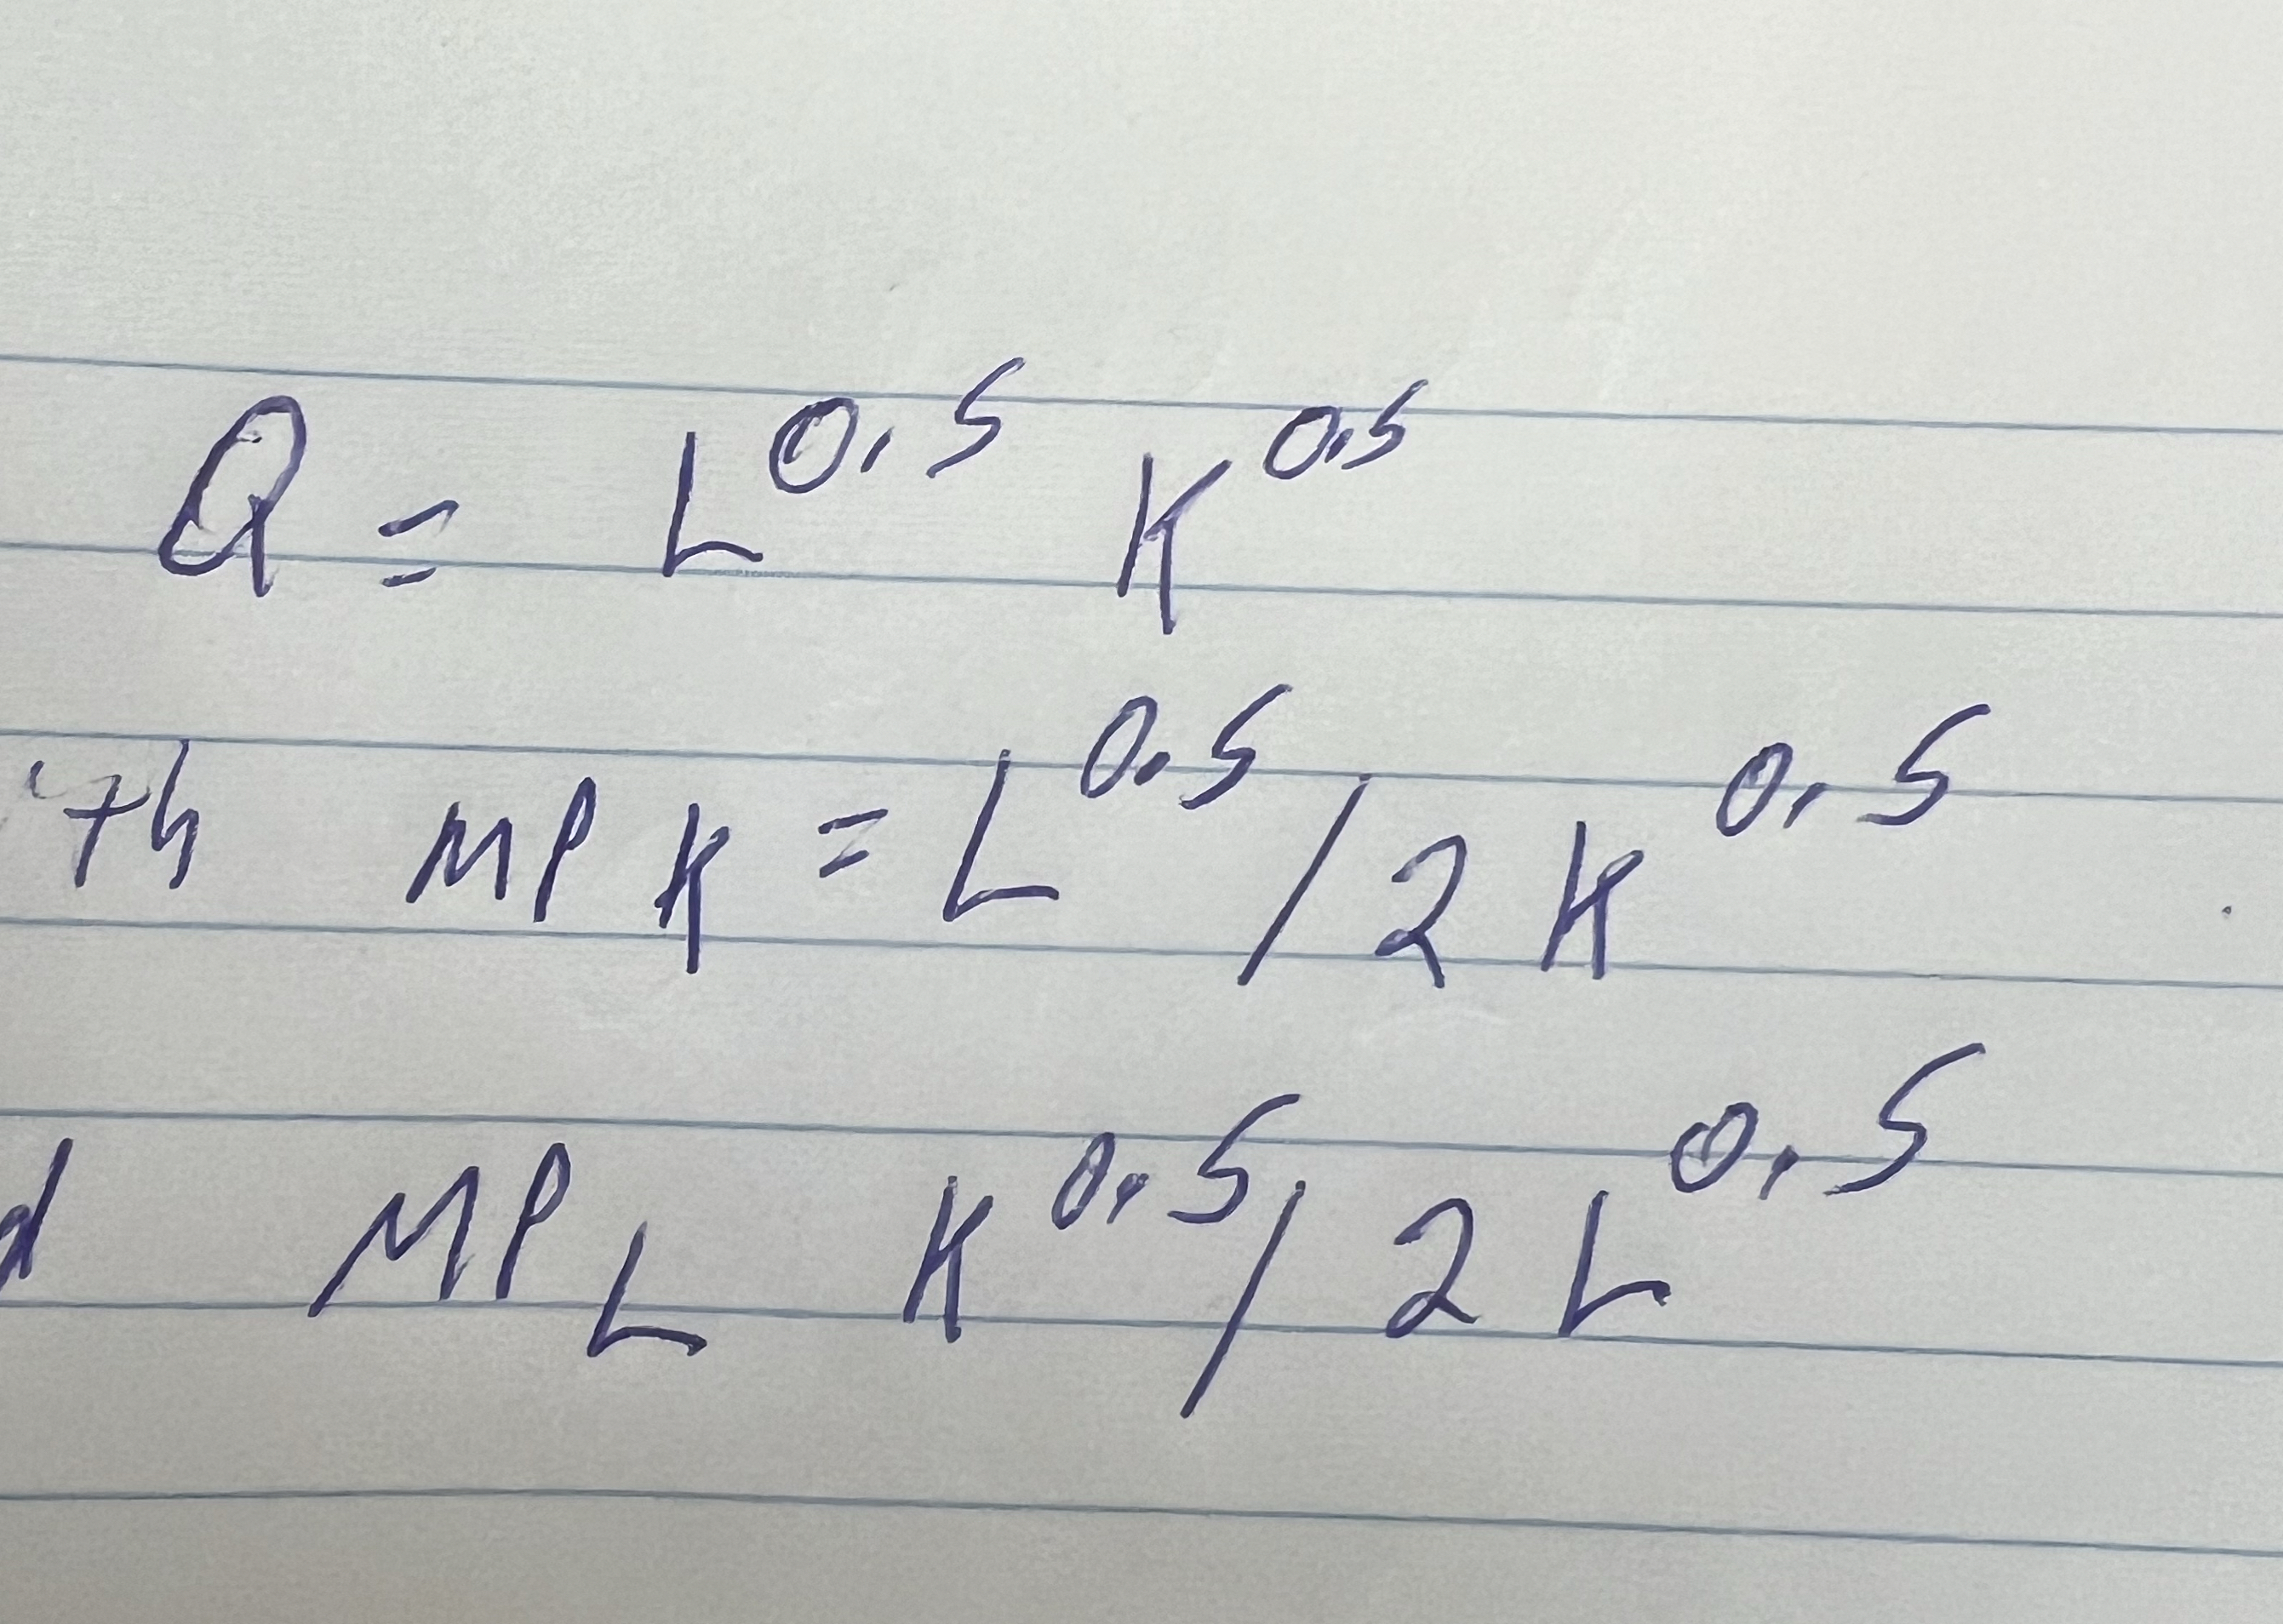 Q = L^0.5 K^0.5
th MPK = L^0.5 / 2 K^0.5
d MP_L K^0.5 / 2 L^0.5